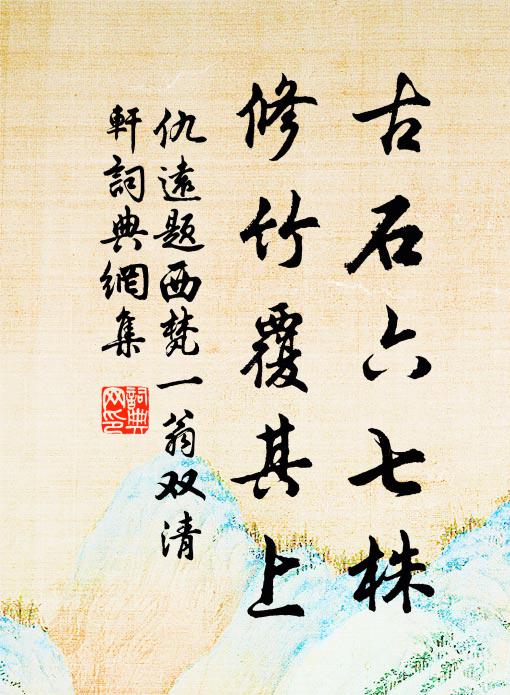 古石六七株
修竹覆其上
仇遠題西梵一翁双清
軒詞典網集
詞典
网印